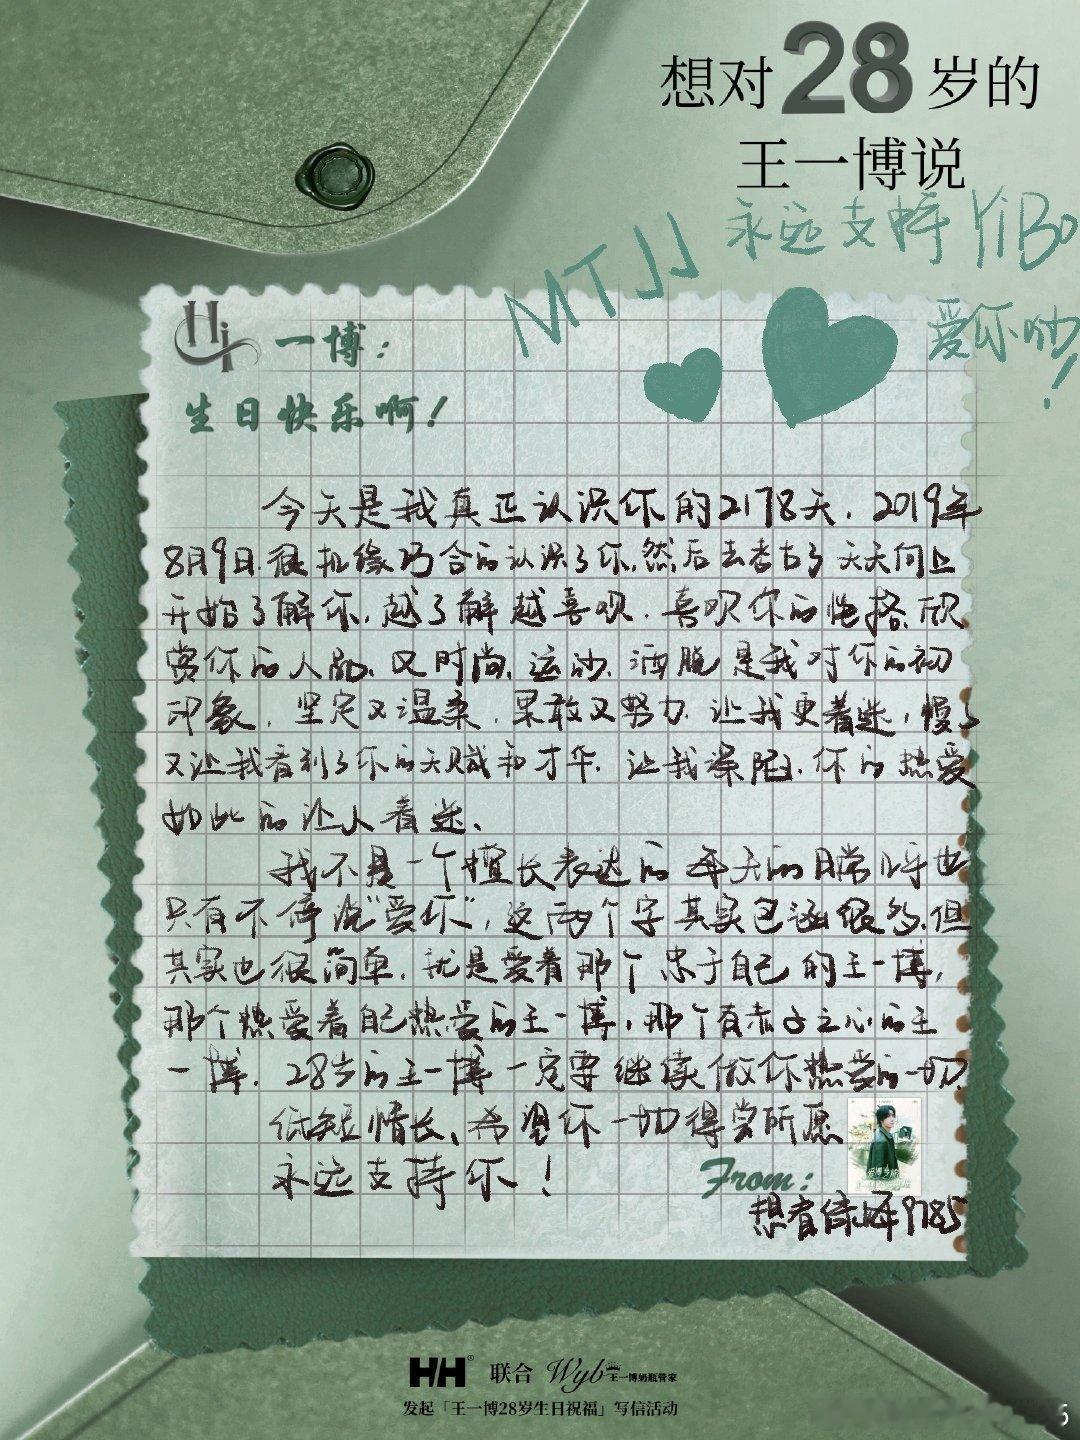 想对28岁的
王一博说
MTJJ 永远支持 YiBo
爱你呦!
Hi 一博：
生日快乐啊！
今天是我真正认识你的2178天，2019年
8月9日很机缘巧合的认识了你，然后去考古了天天向上
开始了解你，越了解越喜欢，喜欢你的性格，欣
赏你的人品，又时尚，运动，洒脱是我对你的初
印象，坚定又温柔，果敢又努力，让我更着迷，慢慢
又让我看到了你的天赋和才华，让我深陷，你的热爱
如此的让人着迷、
我不是一个擅长表达的 每天的日常
只有不停说"爱你"，这两个字其实包涵很多，但
其实也很简单，就是爱着那个忠于自己的王一博，
那个热爱着自己热爱的王一博，那个有赤子之心的王
一博，28岁的王一博一定要继续做你热爱的一切，
纸短情长、希望你一切得尝所愿
永远支持你！
From:
想看 9785
HH® 联合 Wyb 王一博奶瓶管家
发起「王一博28岁生日祝福」写信活动